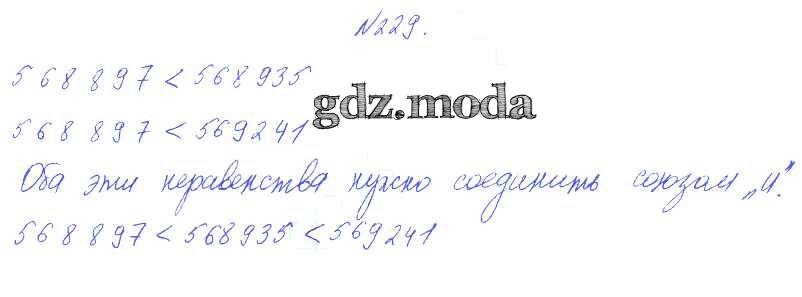 №229.
568 897 < 568935
gdz.moda
568 897 < 569241
Оба эти неравенства нужно соединить союзом „и".
568 897 < 568935 < 569241